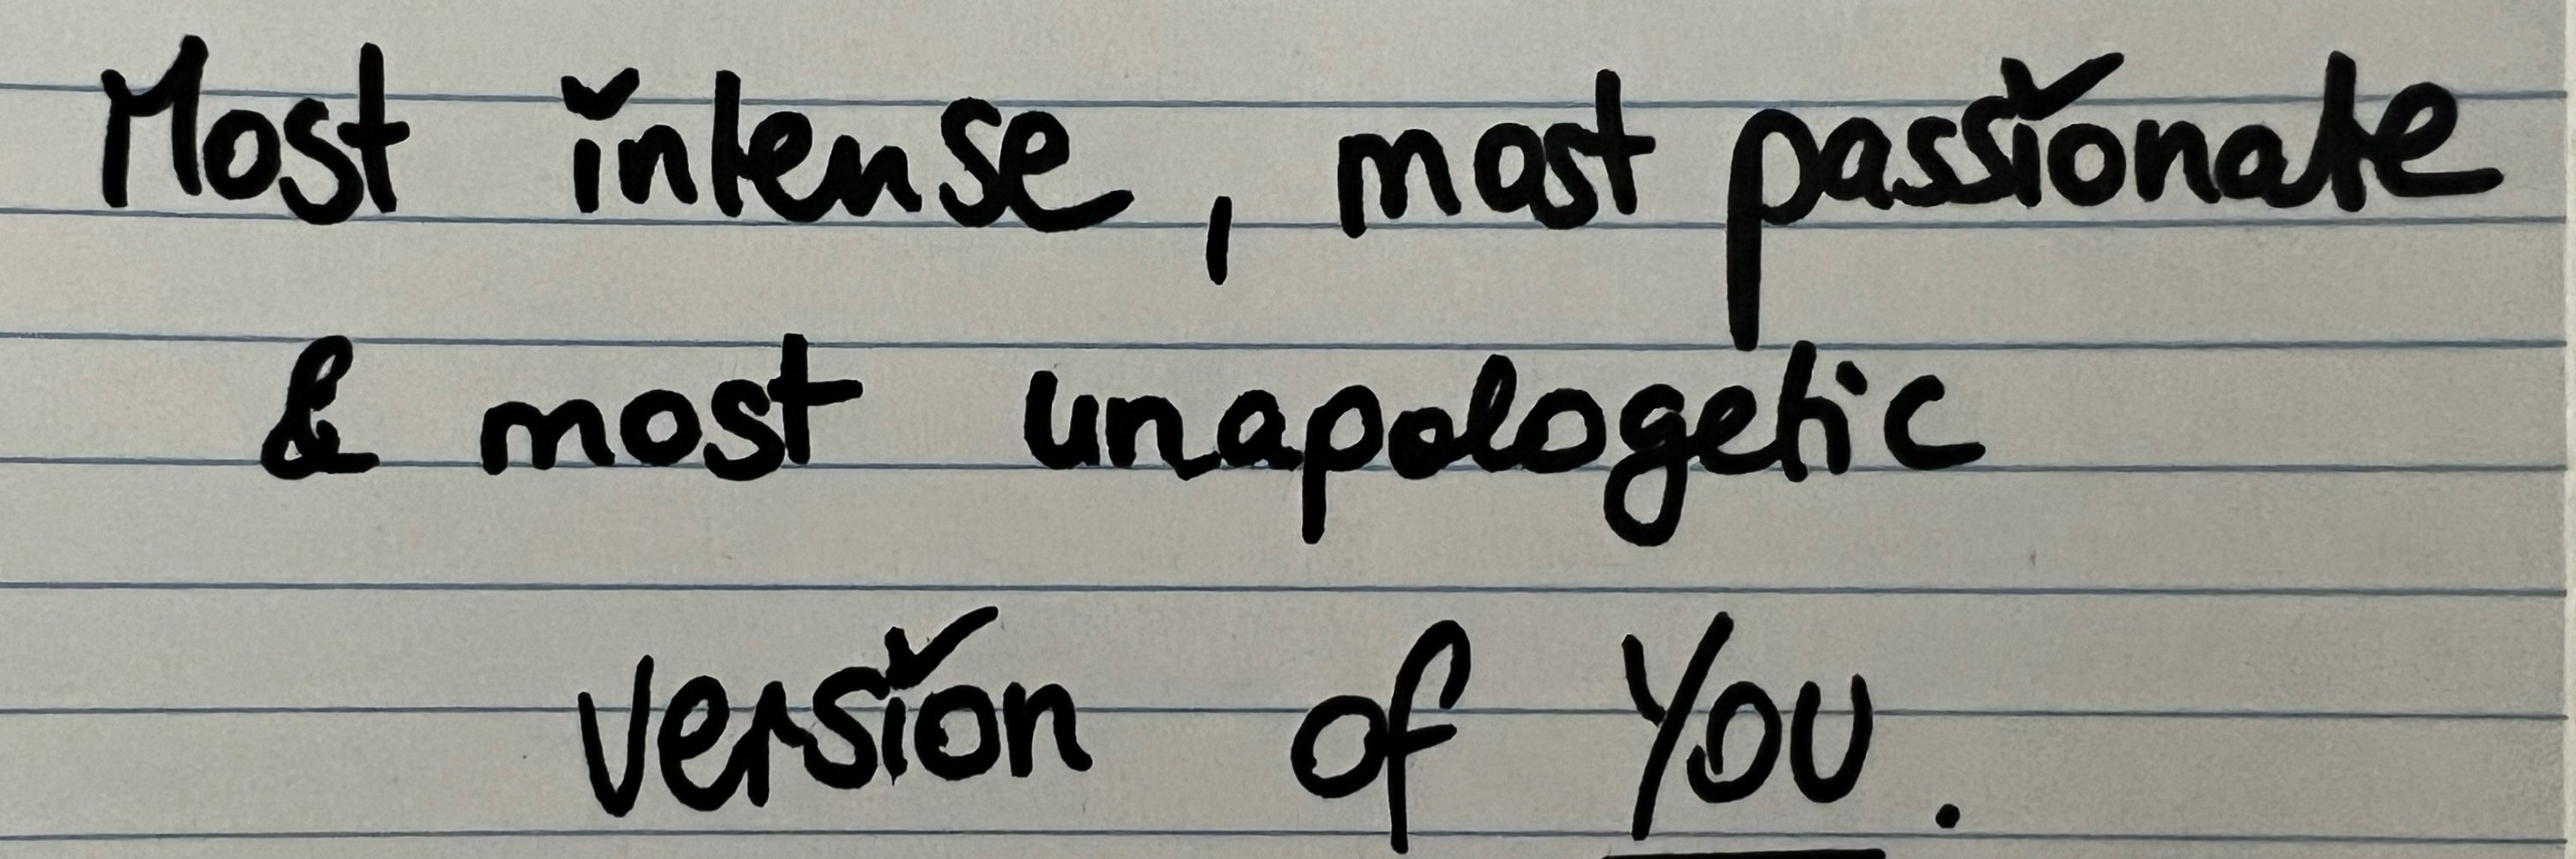 Most intense, most passionate
& most unapologetic
version of YOU.